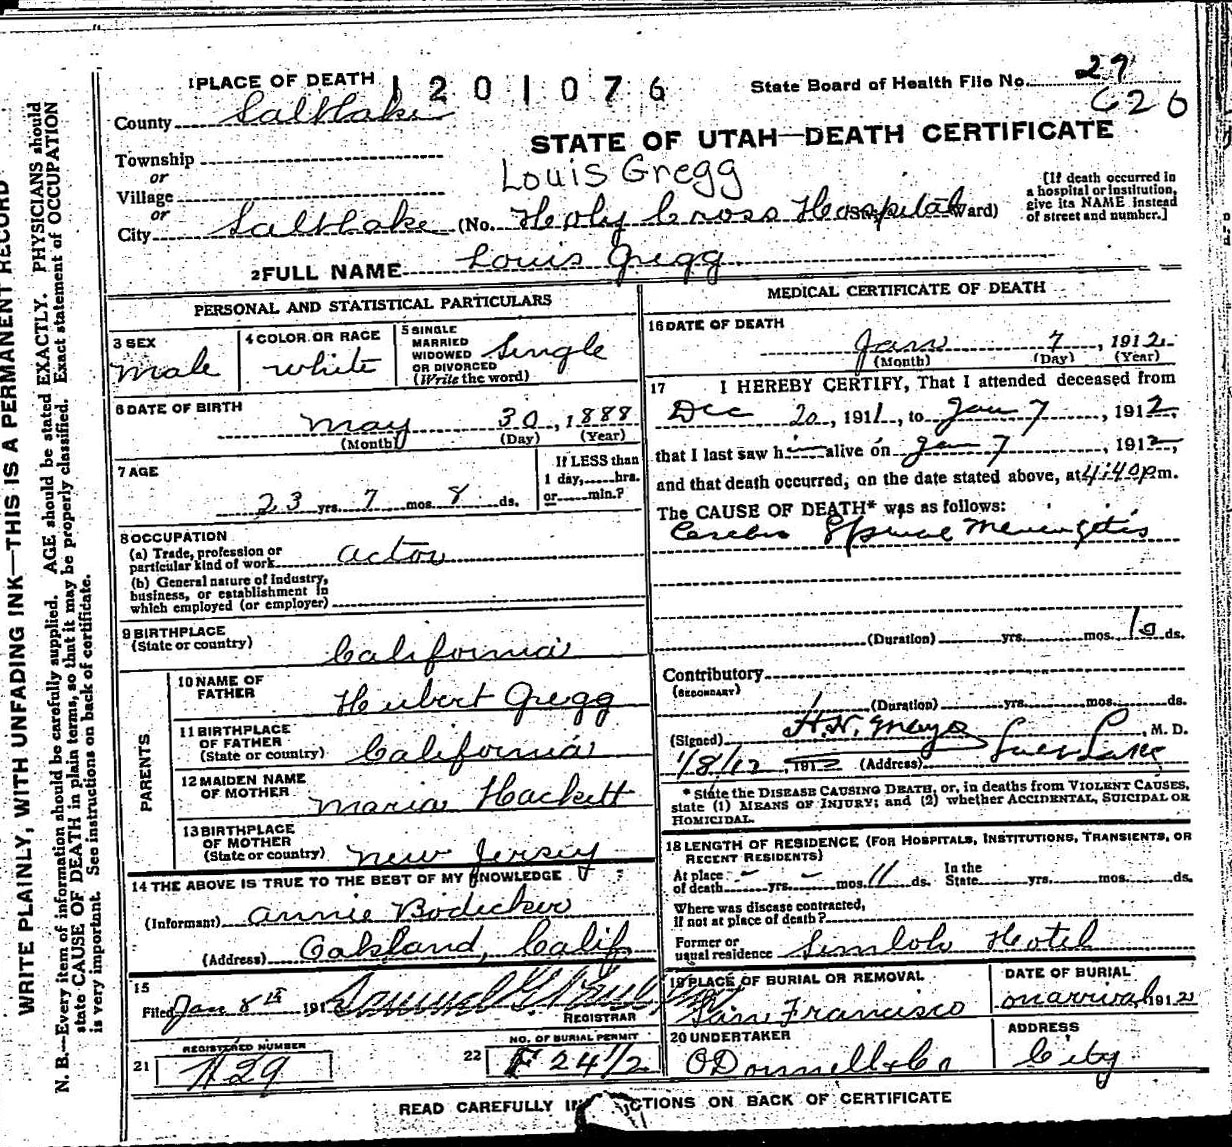 WRITE PLAINLY, WITH UNFADING INK—THIS IS A PERMANENT RECORD
N. B.—Every item of information should be carefully supplied. AGE should be stated EXACTLY. PHYSICIANS should
state CAUSE OF DEATH in plain terms, so that it may be properly classified. Exact statement of OCCUPATION
is very important. See instructions on back of certificate.
1 PLACE OF DEATH 1201076 State Board of Health File No. 29
626
County Saltlake
STATE OF UTAH—DEATH CERTIFICATE
Township
or
Louis Gregg
Village
or
[If death occurred in
a hospital or institution,
give its NAME instead
of street and number.]
City Saltlake (No. Holy Cross Hospital Ward)
2 FULL NAME Louis Gregg
PERSONAL AND STATISTICAL PARTICULARS
3 SEX male
4 COLOR OR RACE white
5 SINGLE
MARRIED
WIDOWED
OR DIVORCED
(Write the word) Single
6 DATE OF BIRTH
may 30, 1888
(Month) (Day) (Year)
7 AGE
23 yrs. 7 mos. 8 ds.
If LESS than
1 day, hrs.
or min.?
8 OCCUPATION
(a) Trade, profession or
particular kind of work actor
(b) General nature of industry,
business, or establishment in
which employed (or employer)
9 BIRTHPLACE
(State or country) California
PARENTS
10 NAME OF
FATHER Herbert Gregg
11 BIRTHPLACE
OF FATHER
(State or country) California
12 MAIDEN NAME
OF MOTHER Maria Hackett
13 BIRTHPLACE
OF MOTHER
(State or country) New Jersey
14 THE ABOVE IS TRUE TO THE BEST OF MY KNOWLEDGE
(Informant) Annie Bodecker
(Address) Oakland, Calif
15
Filed Jan 8th 191
REGISTRAR
REGISTERED NUMBER
21 A29
NO. OF BURIAL PERMIT
22 F 24 1/2
MEDICAL CERTIFICATE OF DEATH
16 DATE OF DEATH
Jan 7, 1912
(Month) (Day) (Year)
17 I HEREBY CERTIFY, That I attended deceased from
Dec 20, 1911, to Jan 7, 1912,
that I last saw him alive on Jan 7, 1912,
and that death occurred, on the date stated above, at 4:40 p m.
The CAUSE OF DEATH* was as follows:
Cerebro Spinal Meningitis
(Duration) yrs. mos. 10 ds.
Contributory
(SECONDARY)
(Duration) yrs. mos. ds.
(Signed) H.N. Mayo, M. D.
1/8/12, 1912 (Address) Lake
* State the DISEASE CAUSING DEATH, or, in deaths from VIOLENT CAUSES,
state (1) MEANS OF INJURY; and (2) whether ACCIDENTAL, SUICIDAL OR
HOMICIDAL.
18 LENGTH OF RESIDENCE (FOR HOSPITALS, INSTITUTIONS, TRANSIENTS, OR
RECENT RESIDENTS)
At place
of death - yrs. - mos. 11 ds. In the
State yrs. mos. ds.
Where was disease contracted,
if not at place of death?
Former or
usual residence Hotel
19 PLACE OF BURIAL OR REMOVAL
San Francisco
DATE OF BURIAL
on arrival 1912
20 UNDERTAKER
O'Donnell & Co
ADDRESS
City
READ CAREFULLY ON BACK OF CERTIFICATE